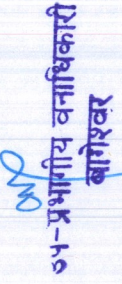 उप-प्रभागीय वनाधिकारी
बागेश्वर